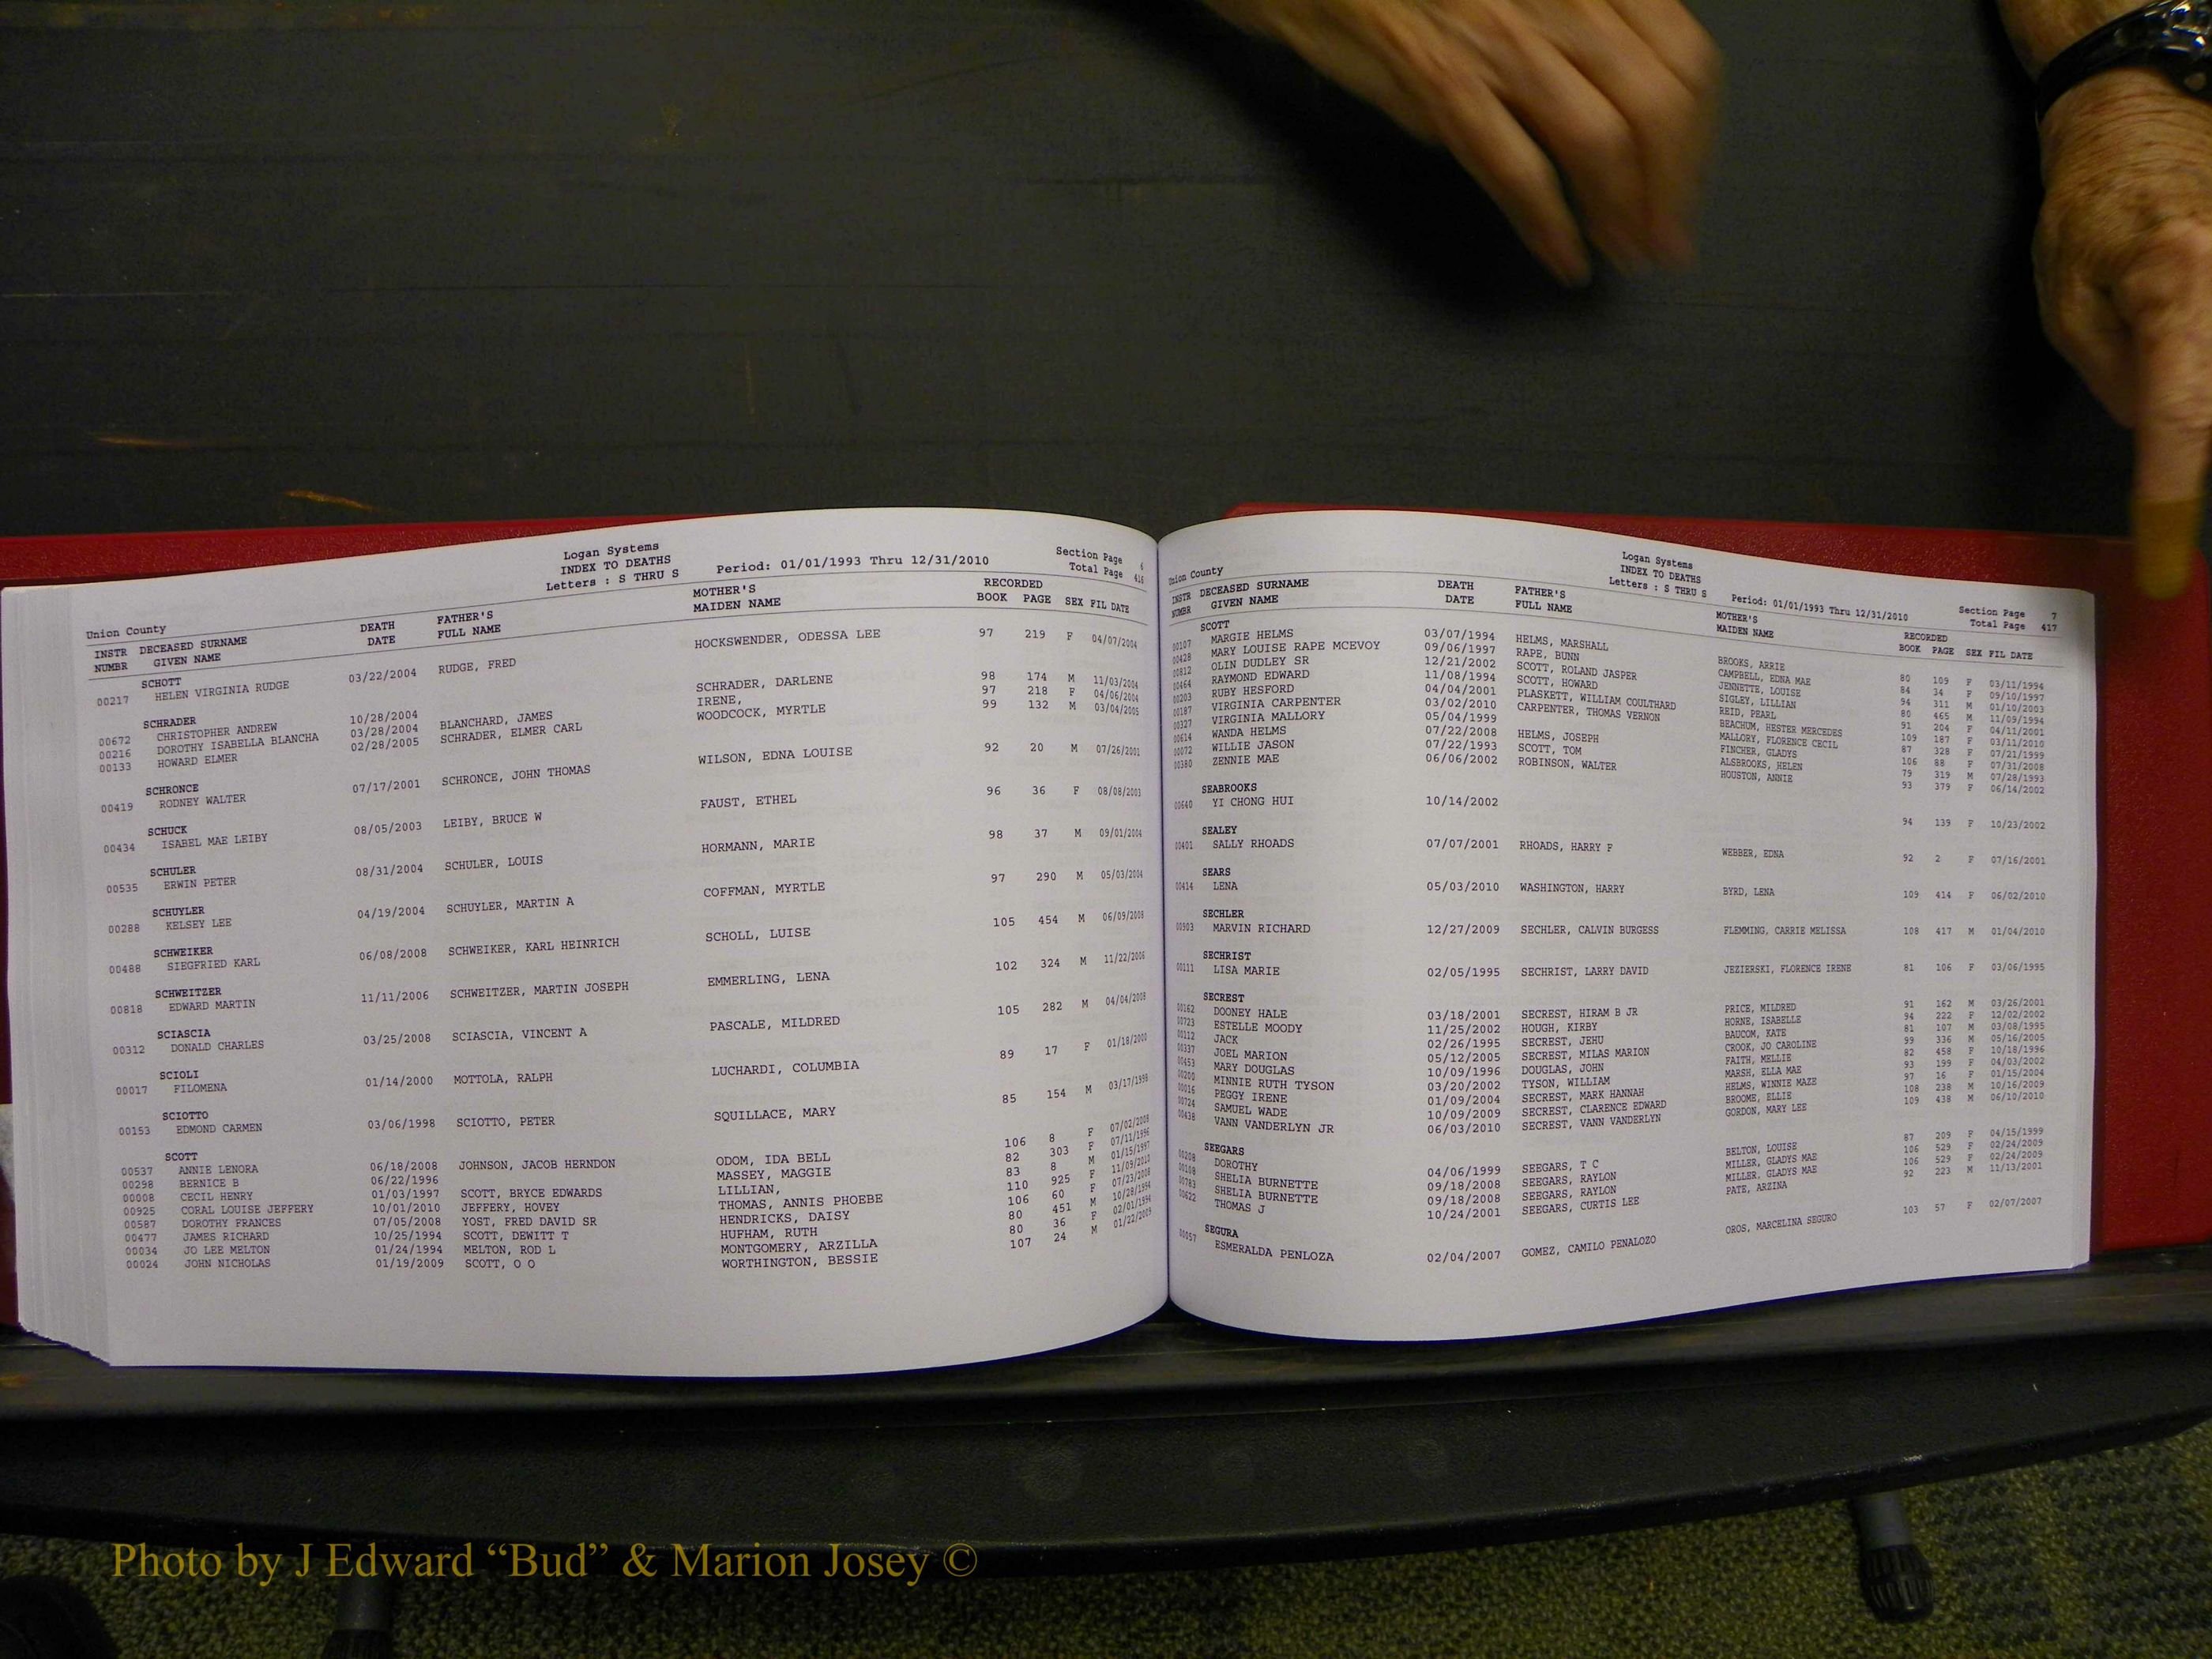 Logan Systems
INDEX TO DEATHS
Letters : S THRU S Period: 01/01/1993 Thru 12/31/2010
Section Page 6
Total Page 416
Union County
INSTR DECEASED SURNAME DEATH FATHER'S MOTHER'S RECORDED
NUMBR GIVEN NAME DATE FULL NAME MAIDEN NAME BOOK PAGE SEX FIL DATE
SCHOTT
00217 HELEN VIRGINIA RUDGE 03/22/2004 RUDGE, FRED HOCKSWENDER, ODESSA LEE 97 219 F 04/07/2004
SCHRADER
00672 CHRISTOPHER ANDREW 10/28/2004 SCHRADER, DARLENE 98 174 M 11/03/2004
00216 DOROTHY ISABELLA BLANCHA 03/28/2004 BLANCHARD, JAMES IRENE, 97 218 F 04/06/2004
00133 HOWARD ELMER 02/28/2005 SCHRADER, ELMER CARL WOODCOCK, MYRTLE 99 132 M 03/04/2005
SCHRONCE
00419 RODNEY WALTER 07/17/2001 SCHRONCE, JOHN THOMAS WILSON, EDNA LOUISE 92 20 M 07/26/2001
SCHUCK
00434 ISABEL MAE LEIBY 08/05/2003 LEIBY, BRUCE W FAUST, ETHEL 96 36 F 08/08/2003
SCHULER
00535 ERWIN PETER 08/31/2004 SCHULER, LOUIS HORMANN, MARIE 98 37 M 09/01/2004
SCHUYLER
00288 KELSEY LEE 04/19/2004 SCHUYLER, MARTIN A COFFMAN, MYRTLE 97 290 M 05/03/2004
SCHWEIKER
00488 SIEGFRIED KARL 06/08/2008 SCHWEIKER, KARL HEINRICH SCHOLL, LUISE 105 454 M 06/09/2008
SCHWEITZER
00818 EDWARD MARTIN 11/11/2006 SCHWEITZER, MARTIN JOSEPH EMMERLING, LENA 102 324 M 11/22/2006
SCIASCIA
00312 DONALD CHARLES 03/25/2008 SCIASCIA, VINCENT A PASCALE, MILDRED 105 282 M 04/04/2008
SCIOLI
00017 FILOMENA 01/14/2000 MOTTOLA, RALPH LUCHARDI, COLUMBIA 89 17 F 01/18/2000
SCIOTTO
00153 EDMOND CARMEN 03/06/1998 SCIOTTO, PETER SQUILLACE, MARY 85 154 M 03/17/1998
SCOTT
00537 ANNIE LENORA 06/18/2008 JOHNSON, JACOB HERNDON ODOM, IDA BELL 106 8 F 07/02/2008
00298 BERNICE B 06/22/1996 MASSEY, MAGGIE 82 303 F 07/11/1996
00008 CECIL HENRY 01/03/1997 SCOTT, BRYCE EDWARDS LILLIAN, 83 8 M 01/15/1997
00925 CORAL LOUISE JEFFERY 10/01/2010 JEFFERY, HOVEY THOMAS, ANNIS PHOEBE 110 925 F 11/09/2010
00587 DOROTHY FRANCES 07/05/2008 YOST, FRED DAVID SR HENDRICKS, DAISY 106 60 F 07/23/2008
00477 JAMES RICHARD 10/25/1994 SCOTT, DEWITT T HUFHAM, RUTH 80 451 M 10/28/1994
00034 JO LEE MELTON 01/24/1994 MELTON, ROD L MONTGOMERY, ARZILLA 80 36 F 02/01/1994
00024 JOHN NICHOLAS 01/19/2009 SCOTT, O O WORTHINGTON, BESSIE 107 24 M 01/22/2009
Logan Systems
INDEX TO DEATHS
Letters : S THRU S Period: 01/01/1993 Thru 12/31/2010
Section Page 7
Total Page 417
Union County
INSTR DECEASED SURNAME DEATH FATHER'S MOTHER'S RECORDED
NUMBR GIVEN NAME DATE FULL NAME MAIDEN NAME BOOK PAGE SEX FIL DATE
SCOTT
00107 MARGIE HELMS 03/07/1994 HELMS, MARSHALL BROOKS, ARRIE 80 109 F 03/11/1994
00428 MARY LOUISE RAPE MCEVOY 09/06/1997 RAPE, BUNN CAMPBELL, EDNA MAE 84 34 F 09/10/1997
00812 OLIN DUDLEY SR 12/21/2002 SCOTT, ROLAND JASPER JENNETTE, LOUISE 94 311 M 01/10/2003
00464 RAYMOND EDWARD 11/08/1994 SCOTT, HOWARD SIGLEY, LILLIAN 80 465 M 11/09/1994
00203 RUBY HESFORD 04/04/2001 PLASKETT, WILLIAM COULTHARD REID, PEARL 91 204 F 04/11/2001
00187 VIRGINIA CARPENTER 03/02/2010 CARPENTER, THOMAS VERNON BEACHUM, HESTER MERCEDES 109 187 F 03/11/2010
00327 VIRGINIA MALLORY 05/04/1999 MALLORY, FLORENCE CECIL 87 328 F 07/21/1999
00614 WANDA HELMS 07/22/2008 HELMS, JOSEPH FINCHER, GLADYS 106 88 F 07/31/2008
00072 WILLIE JASON 07/22/1993 SCOTT, TOM ALSBROOKS, HELEN 79 319 M 07/28/1993
00380 ZENNIE MAE 06/06/2002 ROBINSON, WALTER HOUSTON, ANNIE 93 379 F 06/14/2002
SEABROOKS
00640 YI CHONG HUI 10/14/2002 94 139 F 10/23/2002
SEALEY
00401 SALLY RHOADS 07/07/2001 RHOADS, HARRY F WEBBER, EDNA 92 2 F 07/16/2001
SEARS
00414 LENA 05/03/2010 WASHINGTON, HARRY BYRD, LENA 109 414 F 06/02/2010
SECHLER
00903 MARVIN RICHARD 12/27/2009 SECHLER, CALVIN BURGESS FLEMMING, CARRIE MELISSA 108 417 M 01/04/2010
SECHRIST
00111 LISA MARIE 02/05/1995 SECHRIST, LARRY DAVID JEZIERSKI, FLORENCE IRENE 81 106 F 03/06/1995
SECREST
00162 DOONEY HALE 03/18/2001 SECREST, HIRAM B JR PRICE, MILDRED 91 162 M 03/26/2001
00723 ESTELLE MOODY 11/25/2002 HOUGH, KIRBY HORNE, ISABELLE 94 222 F 12/02/2002
00112 JACK 02/26/1995 SECREST, JEHU BAUCOM, KATE 81 107 M 03/08/1995
00337 JOEL MARION 05/12/2005 SECREST, MILAS MARION CROOK, JO CAROLINE 99 336 M 05/16/2005
00453 MARY DOUGLAS 10/09/1996 DOUGLAS, JOHN FAITH, MELLIE 82 458 F 10/18/1996
00200 MINNIE RUTH TYSON 03/20/2002 TYSON, WILLIAM MARSH, ELLA MAE 93 199 F 04/03/2002
00016 PEGGY IRENE 01/09/2004 SECREST, MARK HANNAH HELMS, WINNIE MAZE 97 16 F 01/15/2004
00724 SAMUEL WADE 10/09/2009 SECREST, CLARENCE EDWARD BROOME, ELLIE 108 238 M 10/16/2009
00438 VANN VANDERLYN JR 06/03/2010 SECREST, VANN VANDERLYN GORDON, MARY LEE 109 438 M 06/10/2010
SEEGARS
00208 DOROTHY 04/06/1999 SEEGARS, T C BELTON, LOUISE 87 209 F 04/15/1999
00108 SHELIA BURNETTE 09/18/2008 SEEGARS, RAYLON MILLER, GLADYS MAE 106 529 F 02/24/2009
00783 SHELIA BURNETTE 09/18/2008 SEEGARS, RAYLON MILLER, GLADYS MAE 106 529 F 02/24/2009
00622 THOMAS J 10/24/2001 SEEGARS, CURTIS LEE PATE, ARZINA 92 223 M 11/13/2001
SEGURA
00057 ESMERALDA PENLOZA 02/04/2007 GOMEZ, CAMILO PENALOZO OROS, MARCELINA SEGURO 103 57 F 02/07/2007
Photo by J Edward “Bud” & Marion Josey ©